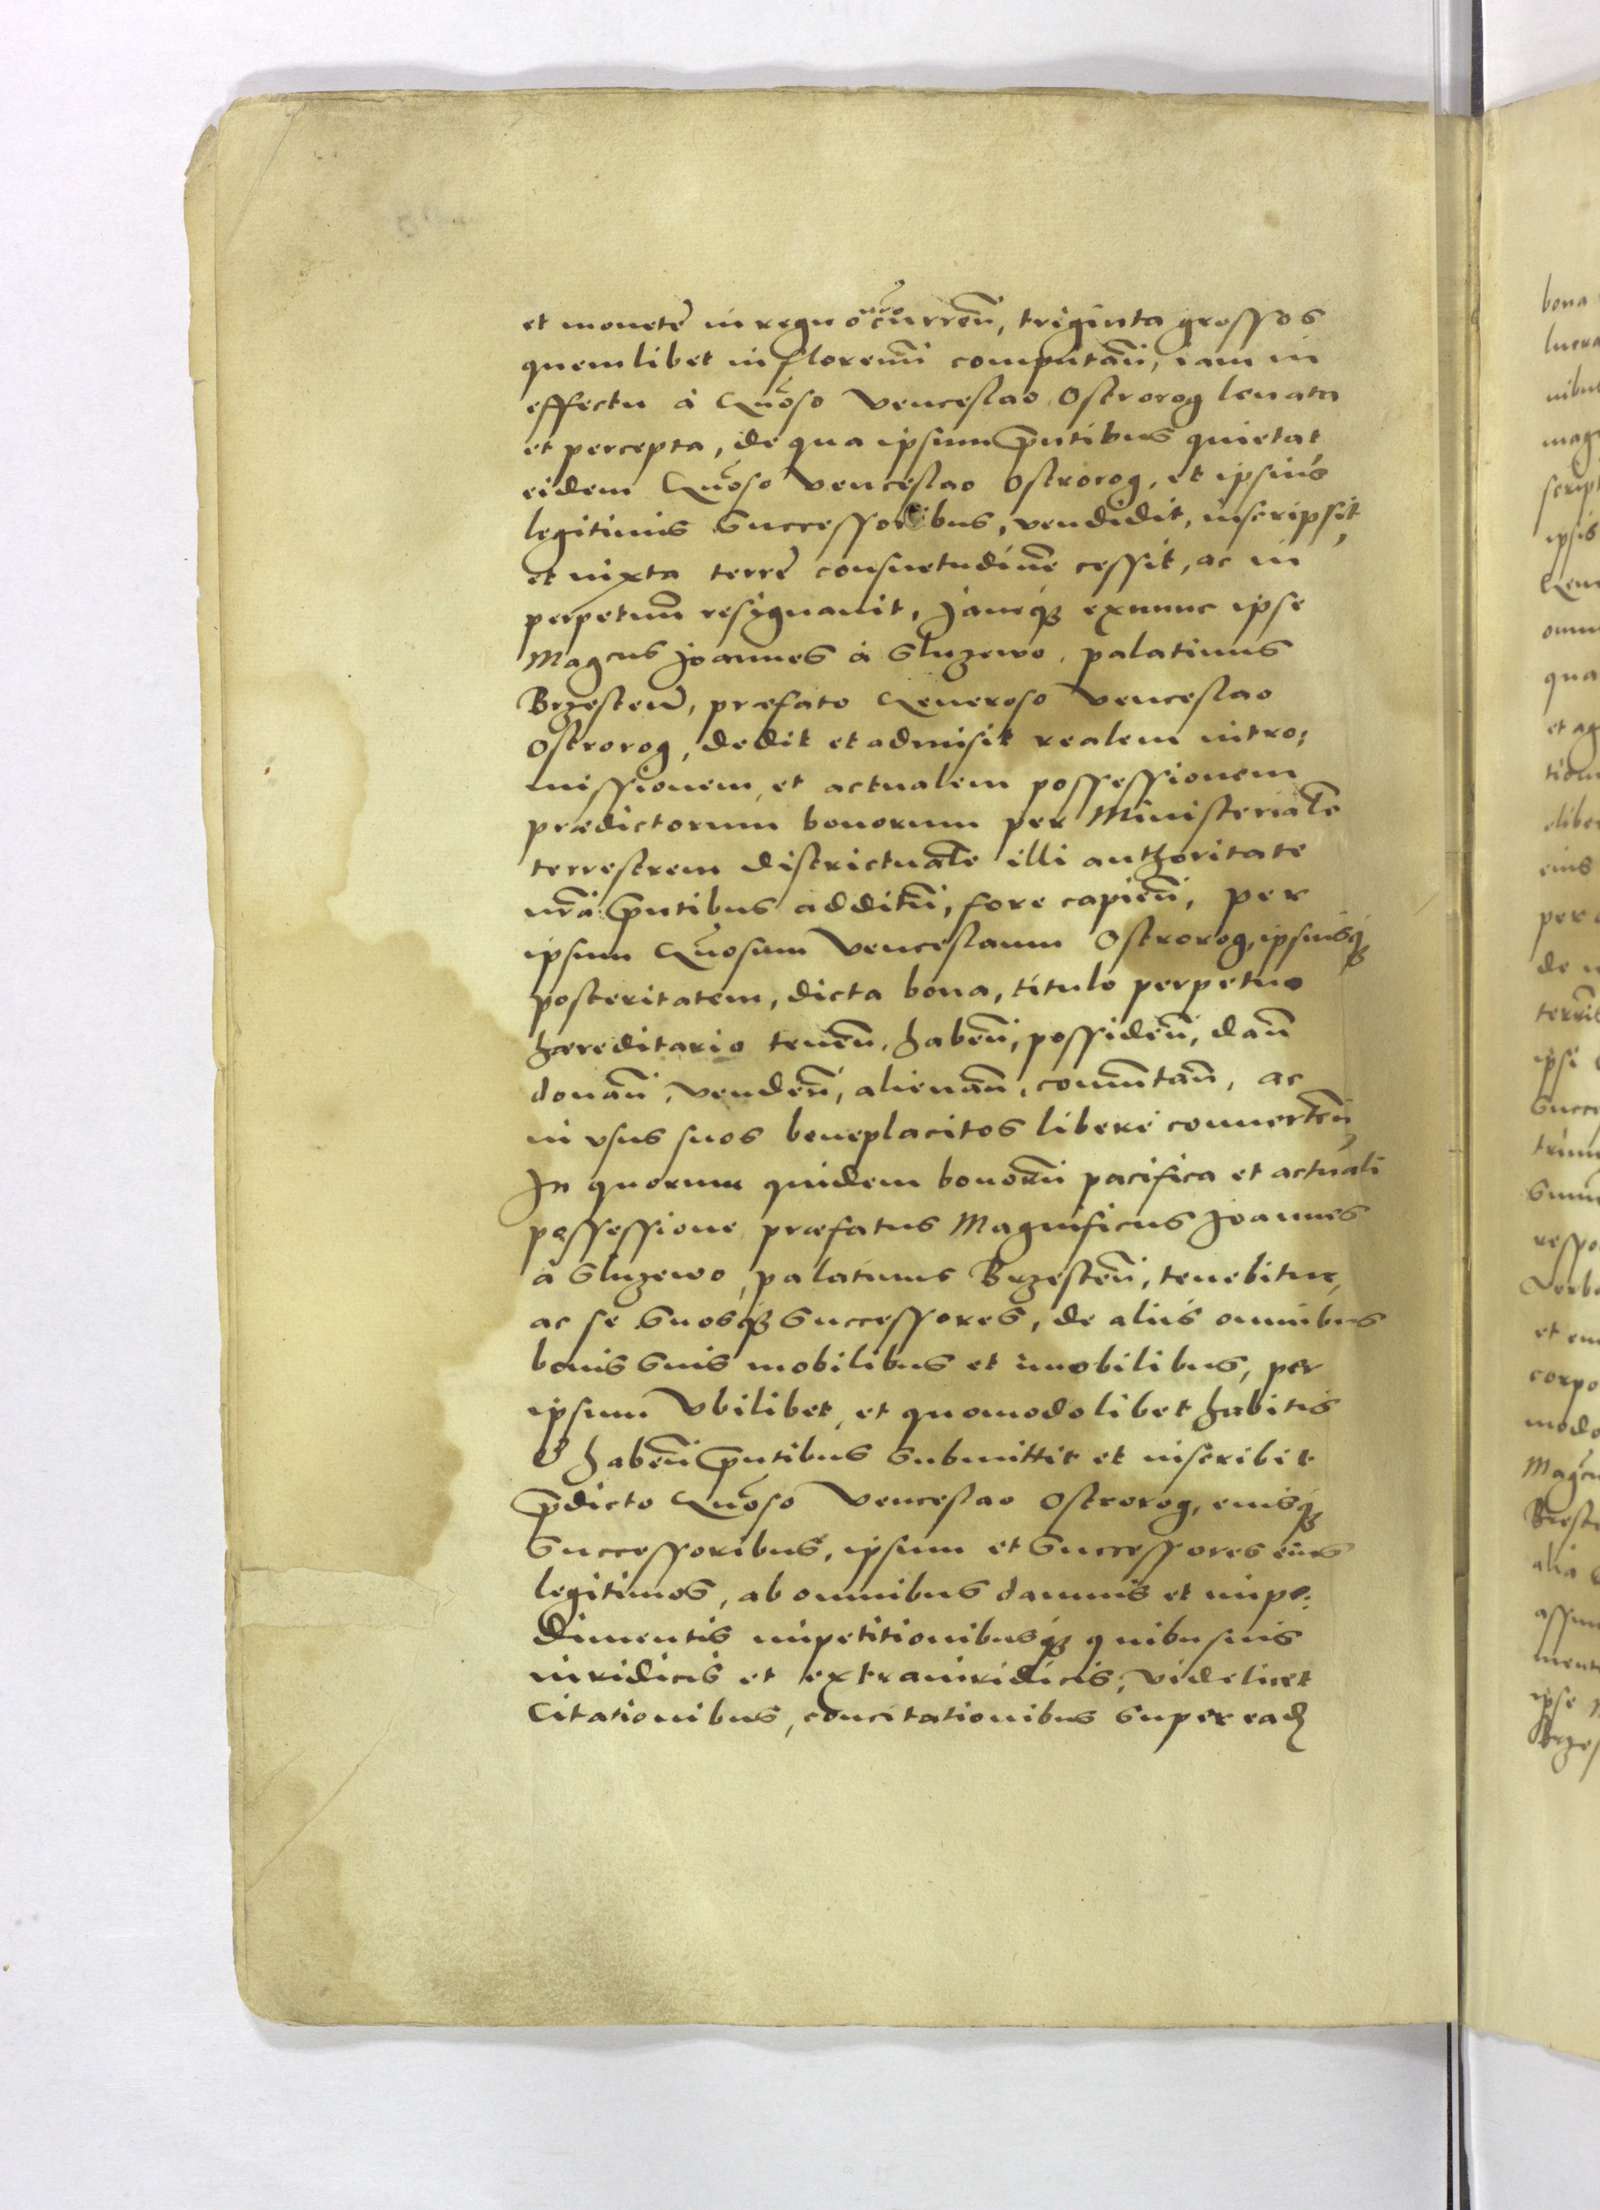 et monetę in regno nr̃o currẽn, triginta grossos
quemlibet in florenũ computãn, iam in
effectu à Gñoso Venceslao Ostrorog leuata
et percepta, de qua ipsum p̃ntibus quietat
eidem Gñoso Venceslao Ostrorog, et ipsius
legitimis Successoribus, vendidit, inscripsit,
et iuxta terrę consuetudinẽ cessit, ac in
perpetuũ resignauit, Jamq̃ʒ exnunc ipse
Magcus Joannes à Sluzewo, palatinus
Brzesteñ, præfato Generoso Venceslao
Ostrorog, dedit et admisit realem intro:
missionem, et actualem possessionem
prædictorum bonorum per Ministerialẽ
terrestrem districtualẽ illi authoritate
nr̃a p̃ntibus additũ, fore capieñ, per
ipsum Gñosum Venceslaum Ostrorog, ipsiusq̃ʒ
posteritatem, dicta bona, titulo perpetuo
hæreditario tenẽn, habẽn, possidẽn, dãn
donãn, vendẽn, alienãn, comutãn, ac
in vsus suos beneplacitos liberè conuertẽn,
In quorum quidem bonorũ pacifica et actuali
possessione præfatus Magnificus Joannes
à Sluzewo, palatinus Brzestẽn, tenebitur,
ac se Suosq̃ʒ Successores, de aliis omnibus
bonis Suis mobilibus et im̃obilibus, per
ipsum Vbilibet, et quomodolibet habitis
& habẽn p̃ntibus Submittit et inscribit
p̃dicto Gñoso Venceslao Ostrorog, eiusq̃ʒ
Successoribus, ipsum et Successores eius
legitimos, ab omnibus damnis et impe:
dimentis impetitionibusq̃ʒ quibusuis
iuridicis et extraiuridicis, videlicet
Citationibus, concitationibus Super eadẽ
bona
lucra
nibus
mag
script
ipsis
Gen
omn
qua
et ag
tion
eliber
eius
per
de
terris
ipsi
Succe
trium
Summ
respo
Verb
et em
corpo
modo
Magcu
Brest
alia
assum
ment
ipse
Brzes